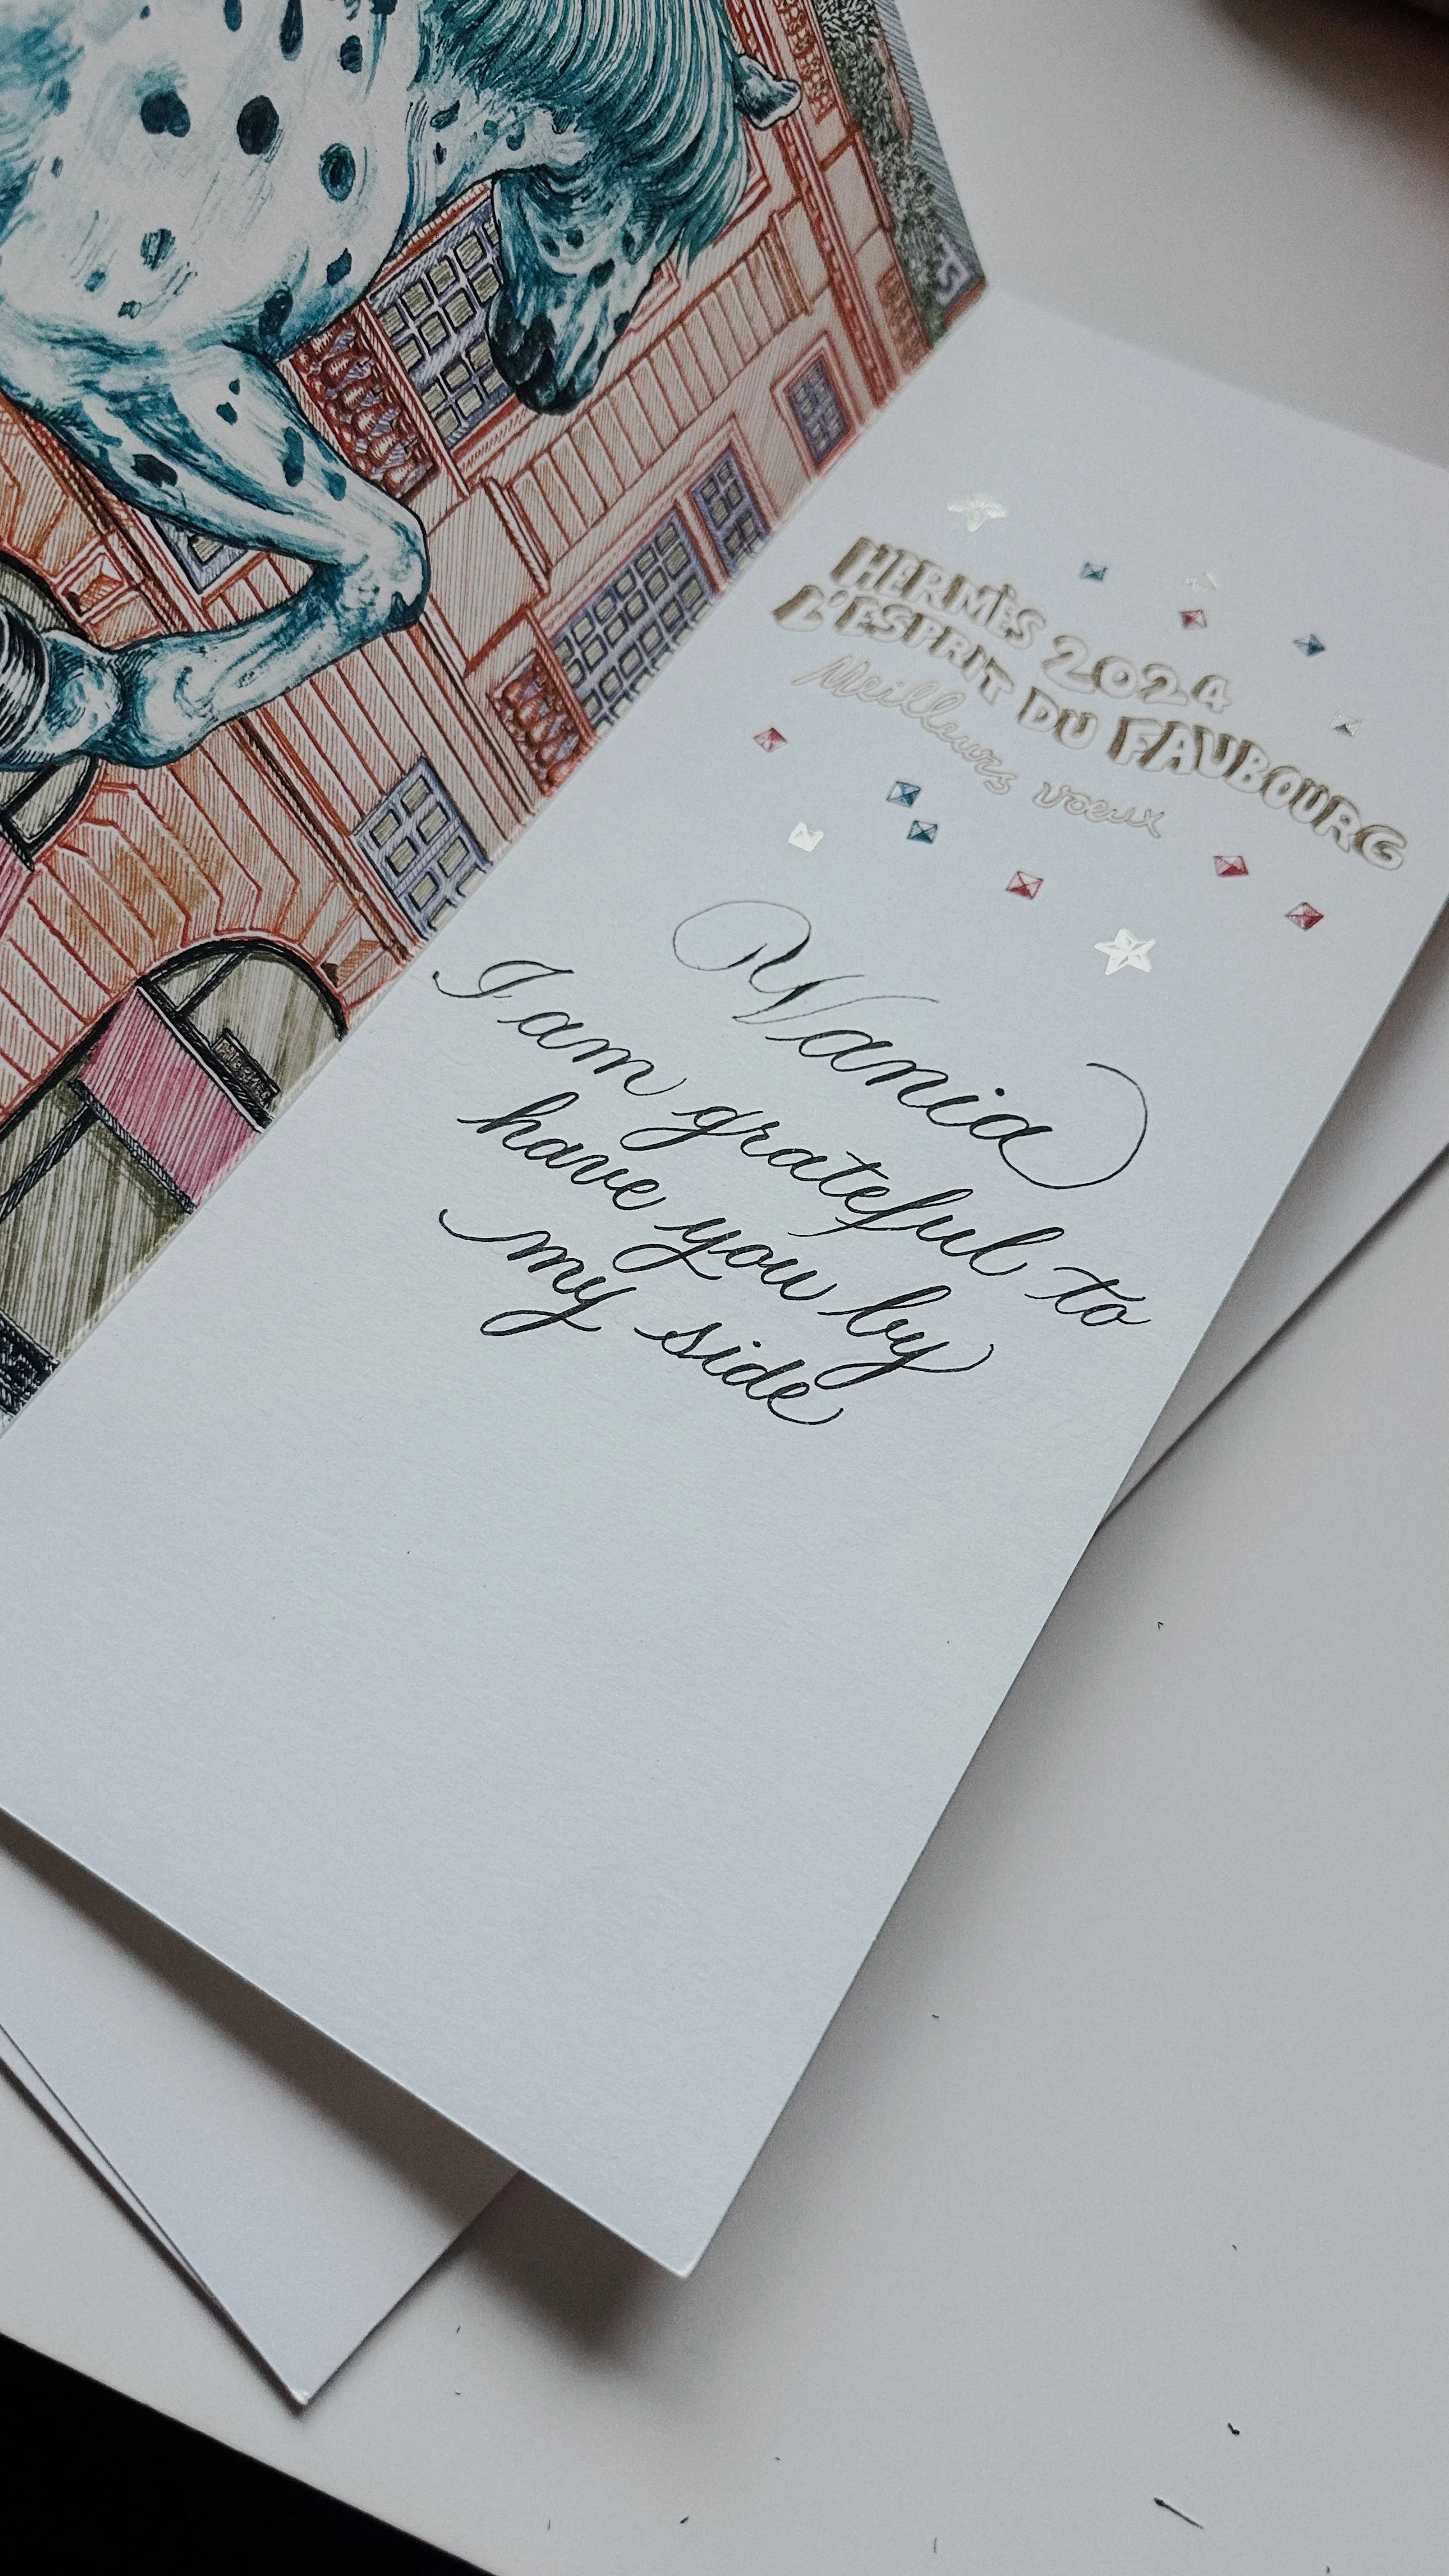 HERMÈS 2024
L'ESPRIT DU FAUBOURG
Meilleurs voeux
Vania
I am grateful to
have you by
my side